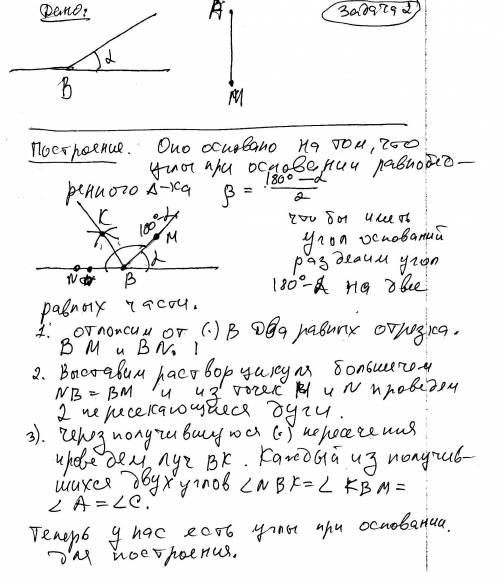 Дано: A Задача 2
α
B M
Построение. Оно основано на том, что
углы при основании равнобед-
ренного Δ-ка β = 180°-α / 2
K 180°-α M α N B
что бы иметь
угол оснований
разделим угол
180°-α на две
равных части.
1. отложим от (·) B два равных отрезка.
BM и BN.
2. Выставим раствор циркуля больше чем
NB = BM и из точек M и N проведем
2 пересекающиеся дуги.
3). Через получившуюся (·) пересечения
проведем луч BK. Каждый из получив-
шихся двух углов ∠NBK = ∠KBM =
∠A = ∠C.
Теперь у нас есть углы при основании.
для построения.